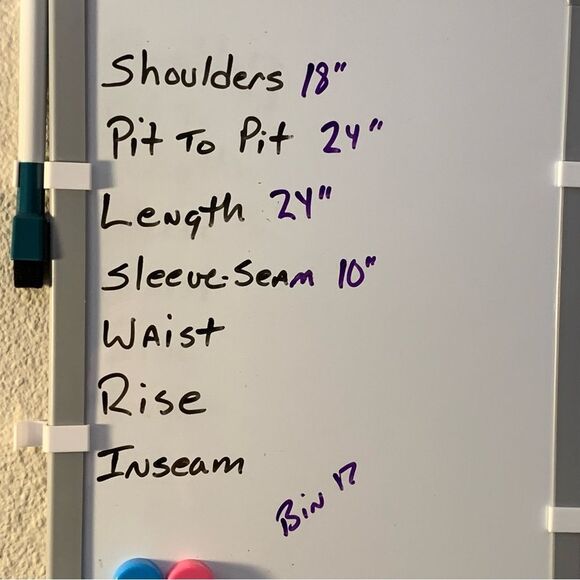 Shoulders 18"
Pit To Pit 24"
Length 24"
Sleeve-Seam 10"
Waist
Rise
Inseam
Bin 17